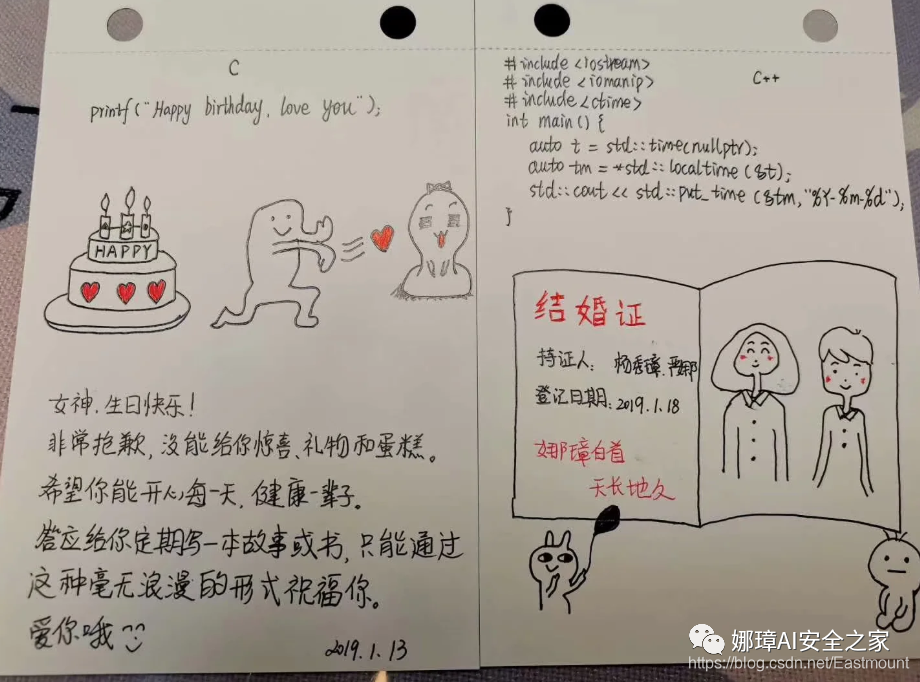 C
printf("Happy birthday, love you");
HAPPY
女神.生日快乐!
非常抱歉,没能给你惊喜、礼物和蛋糕。
希望你能开心每一天,健康一辈子。
答应给你定期写一本故事或书,只能通过
这种毫无浪漫的形式祝福你。
爱你哦
2019.1.13
#include <iostream>
#include <iomanip>
#include <ctime>
C++
int main() {
auto t = std::time(nullptr);
auto tm = *std::localtime(&t);
std::cout << std::put_time(&tm, "%Y-%m-%d");
}
结婚证
持证人: 杨秀璋.严娜
登记日期:2019.1.18
娜璋白首
天长地久
娜璋AI安全之家
https://blog.csdn.net/Eastmount